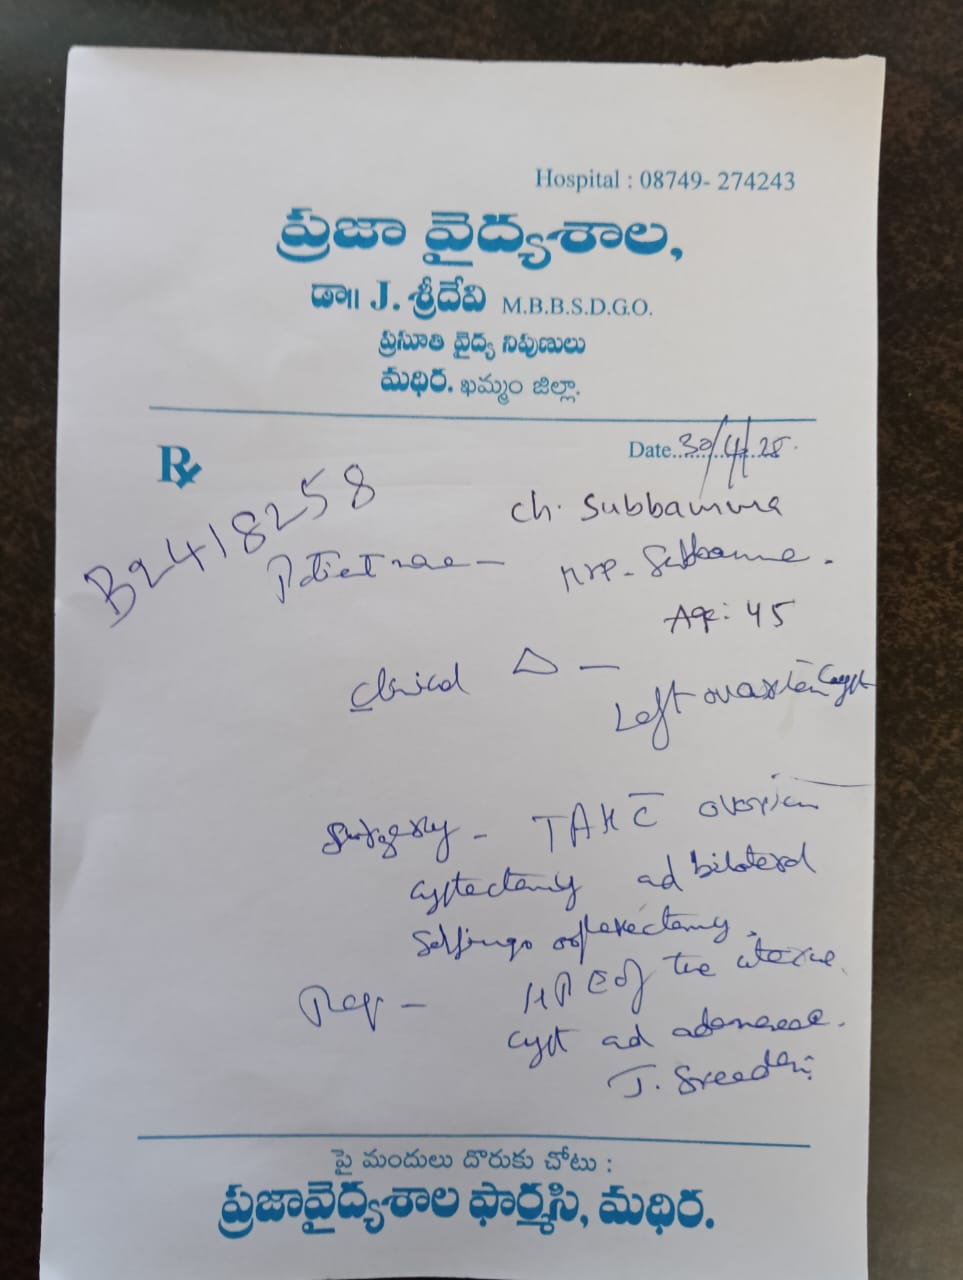 Hospital : 08749- 274243
ప్రజా వైద్యశాల,
డా॥ J. శ్రీదేవి M.B.B.S.D.G.O.
ప్రసూతి వైద్య నిపుణులు
మధిర. ఖమ్మం జిల్లా.
Rx Date..30/4/25.
B2418258
ch. Subbamma
Patiet nae — Mrs. Subbamma.
Age: 45
Clinical △ —
Left ovarian cyst
Surgery - TAH C̅ ovarian
cystectomy ad bilateral
Salpingo oophorectomy.
Req — HPE of the uterus.
cyst ad adenexae.
J. Sreedevi
పై మందులు దొరుకు చోటు :
ప్రజావైద్యశాల ఫార్మసి, మధిర.